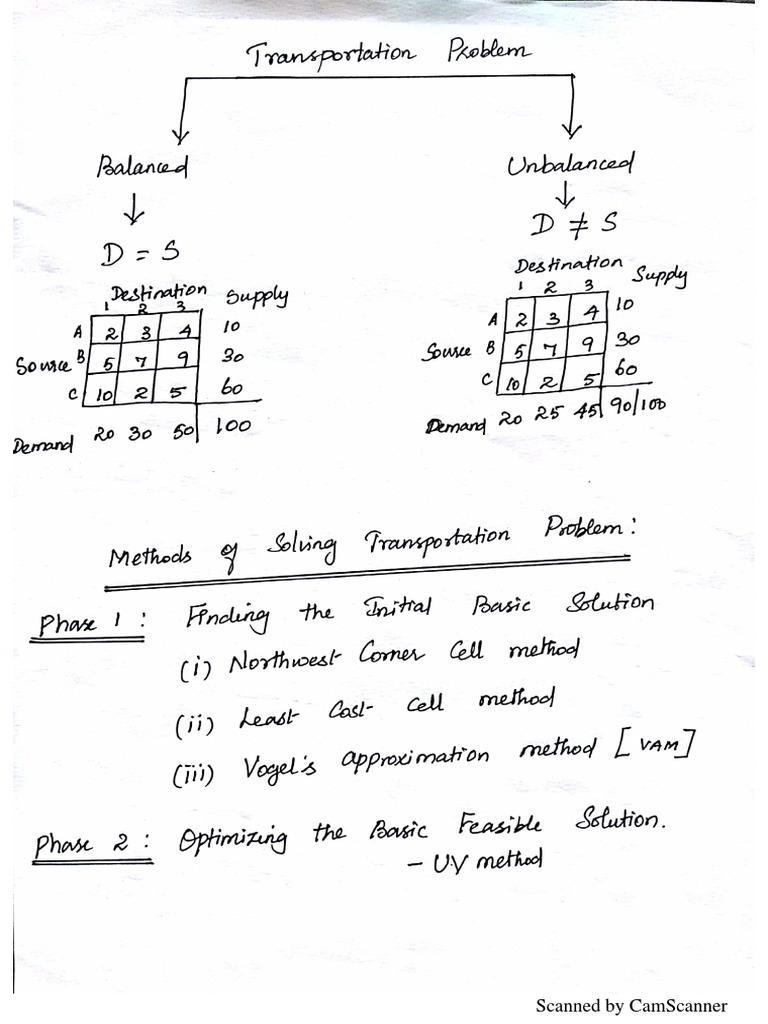 Transportation Problem
Balanced Unbalanced
D = S D ≠ S
Destination Supply Destination Supply
1 2 3 1 2 3
A 2 3 4 10 A 2 3 4 10
Source B 5 7 9 30 Source B 5 7 9 30
C 10 2 5 60 C 10 2 5 60
Demand 20 30 50 100 Demand 20 25 45 90/100
Methods of Solving Transportation Problem:
Phase 1: Finding the Initial Basic Solution
(i) Northwest Corner Cell method
(ii) Least Cost Cell method
(iii) Vogel's Approximation method [VAM]
Phase 2: Optimizing the Basic Feasible Solution.
- UV method
Scanned by CamScanner